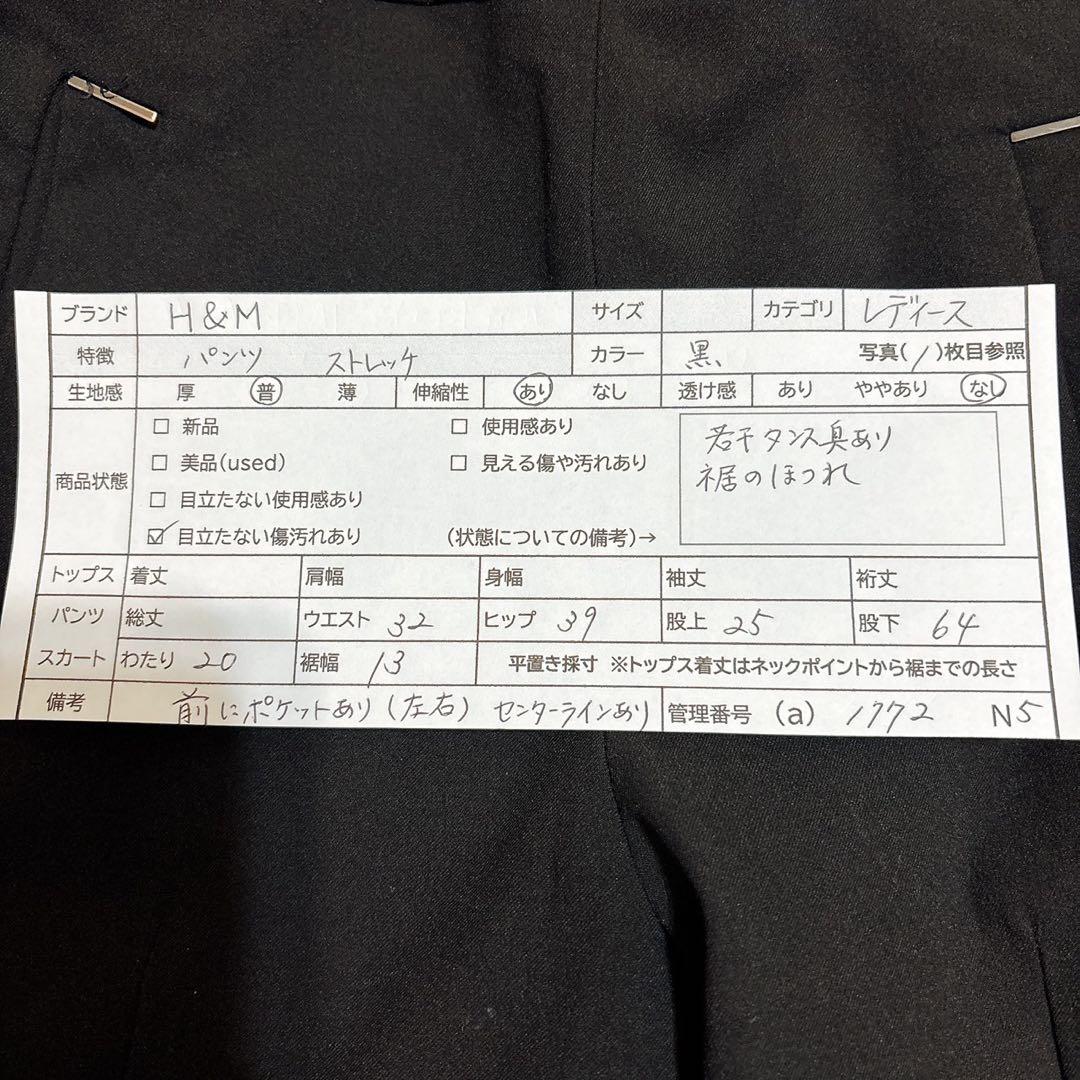 ブランド H&M サイズ カテゴリ レディース
特徴 パンツ ストレッチ カラー 黒 写真(1)枚目参照
生地感 厚 普 薄 伸縮性 あり なし 透け感 あり ややあり なし
商品状態
□ 新品 □ 使用感あり
□ 美品(used) □ 見える傷や汚れあり
□ 目立たない使用感あり
☑ 目立たない傷汚れあり (状態についての備考)→
若干タンス臭あり
裾のほつれ
トップス 着丈 肩幅 身幅 袖丈 裄丈
パンツ 総丈 ウエスト 32 ヒップ 39 股上 25 股下 64
スカート わたり 20 裾幅 13 平置き採寸 ※トップス着丈はネックポイントから裾までの長さ
備考 前にポケットあり(左右) センターラインあり 管理番号 (a) 1772 N5